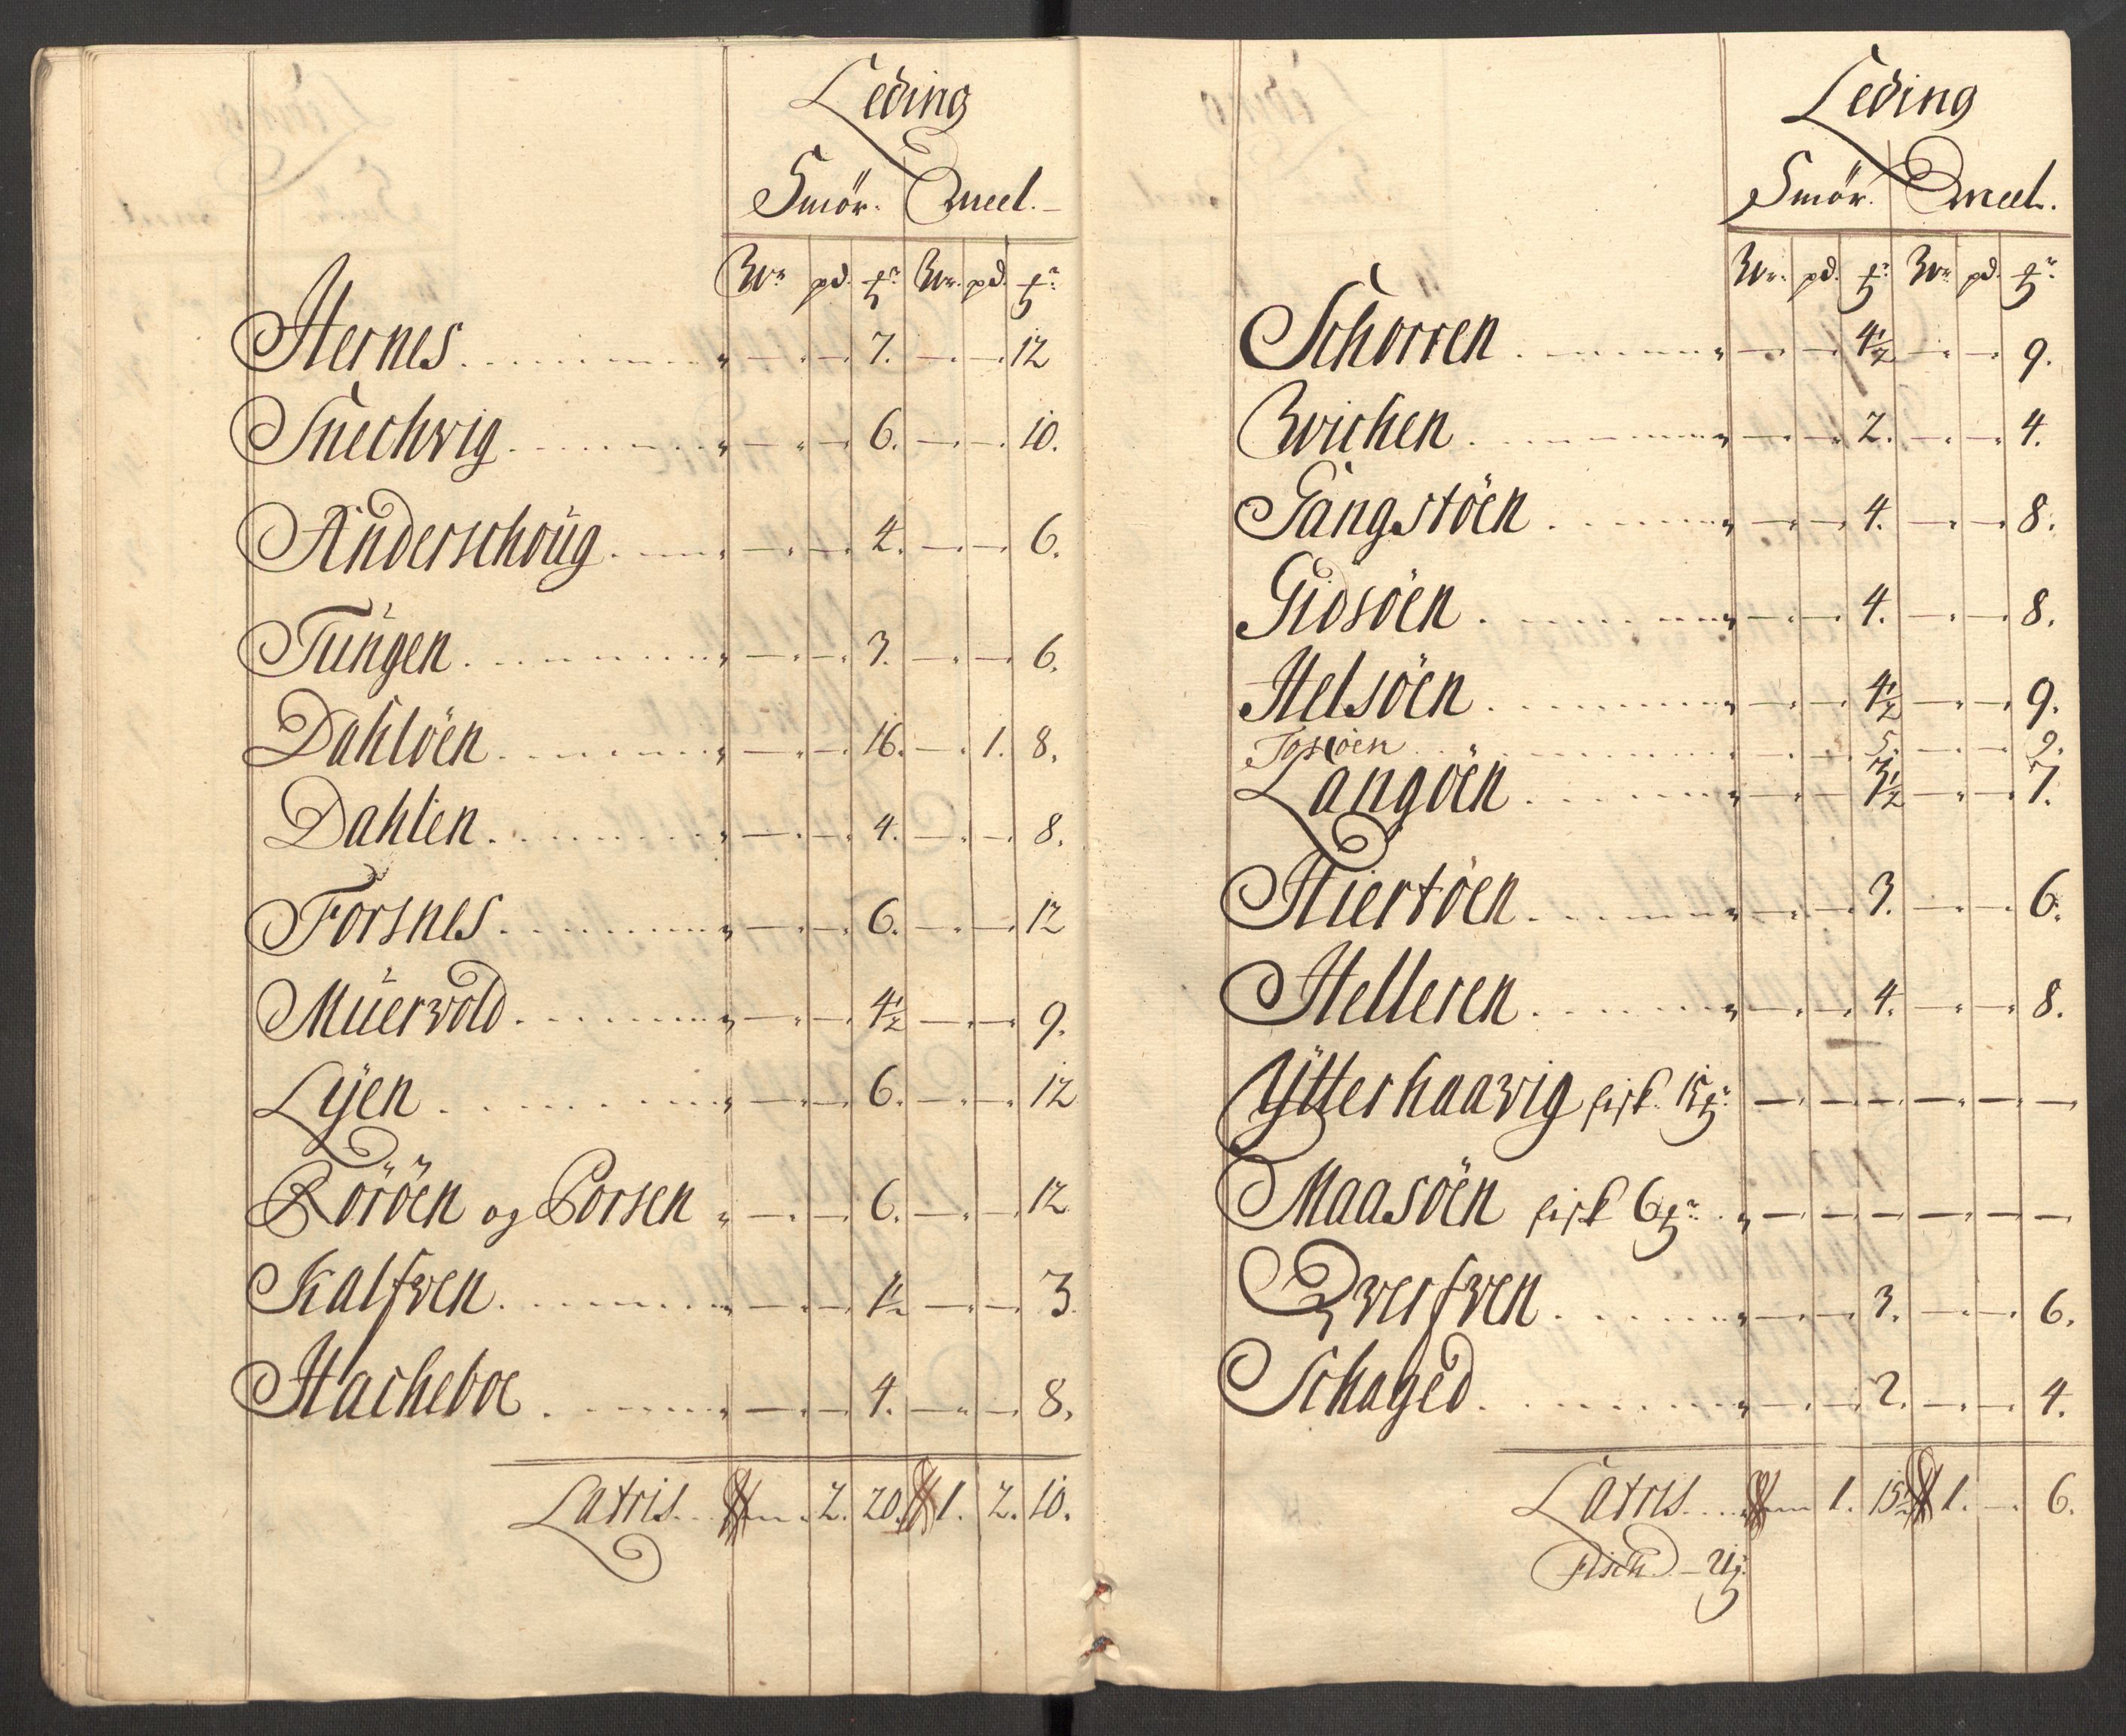 Leding
Smör. Meel.
Wr pd ℔r Wr. pd. ℔r
Hernes 7. 12
Snechvig 6. 10.
Anderschoug 4. 6.
Tungen 3. 6.
Dahlöen 16. 1. 8.
Dahlen 4. 8.
Forsnes 6. 12
Muervold 4½ 9.
Lyen 6. 12
Röröen og Porsen 6. 12
Kalfven 1½ 3
Hacheboe 4. 8.
Latris 2. 20. 1. 2. 10.
Leding
Smör. Meel.
Wr. pd. ℔r Wr pd. ℔r
Schorren 4½ 9.
Wichen 2. 4.
Gangstöen 4. 8.
Gidsöen 4. 8.
Helsöen 4½ 9.
Josöen 5. 9.
Langöen 3½ 7.
Hiertöen 3. 6.
Helleren 4. 8.
Ytterhaavig fisk. 15 ℔r
Maasöen fisk 6 ℔r
Qverfven 3. 6.
Schaged 2. 4.
Latris 1. 15½ 1. 6.
Fisch 21 ℔